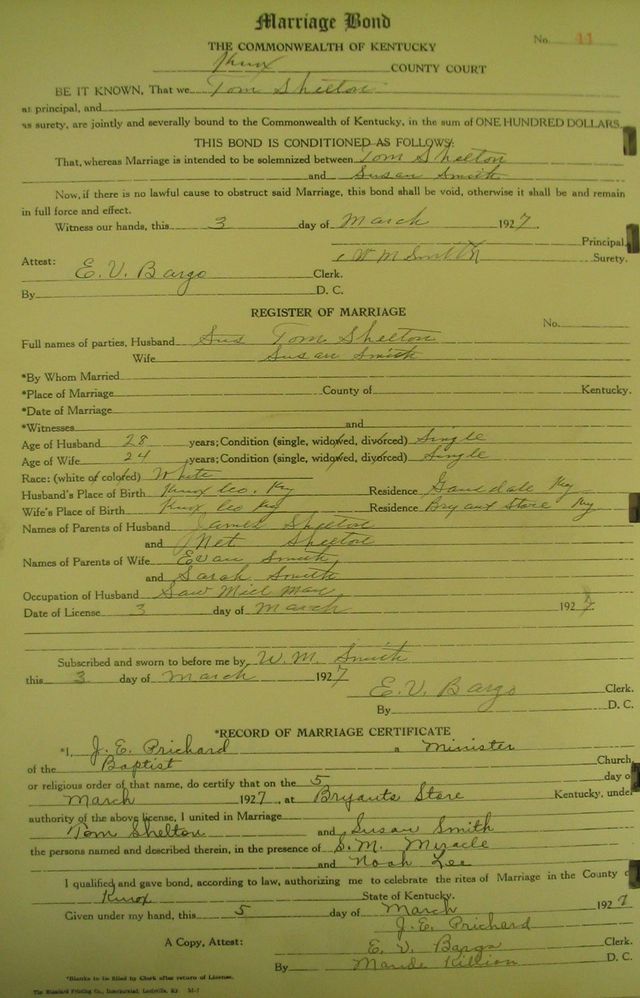 Marriage Bond
No. 11
THE COMMONWEALTH OF KENTUCKY
Knox COUNTY COURT
BE IT KNOWN, That we Tom Shelton
as principal, and
as surety, are jointly and severally bound to the Commonwealth of Kentucky, in the sum of ONE HUNDRED DOLLARS.
THIS BOND IS CONDITIONED AS FOLLOWS:
That, whereas Marriage is intended to be solemnized between Tom Shelton
and Susan Smith
Now, if there is no lawful cause to obstruct said Marriage, this bond shall be void, otherwise it shall be and remain
in full force and effect.
Witness our hands, this 3 day of March 1927.
Principal.
Attest: W M Smith Surety.
E. V. Bargo Clerk.
By D. C.
REGISTER OF MARRIAGE
No.
Full names of parties, Husband Sus Tom Shelton
Wife Susan Smith
*By Whom Married
*Place of Marriage County of Kentucky.
*Date of Marriage
*Witnesses and
Age of Husband 28 years; Condition (single, widowed, divorced) Single
Age of Wife 24 years; Condition (single, widowed, divorced) Single
Race: (white or colored) White
Husband's Place of Birth Knox Co. Ky Residence Ky
Wife's Place of Birth Knox Co Ky Residence Bryant Store Ky
Names of Parents of Husband James Shelton
and Net Shelton
Names of Parents of Wife Evan Smith
and Sarah Smith
Occupation of Husband Saw Mill Man
Date of License 3 day of March 1927
Subscribed and sworn to before me by W. M. Smith
this 3 day of March 1927
E. V. Bargo Clerk.
By D. C.
*RECORD OF MARRIAGE CERTIFICATE
*I, J. E. Prichard a Minister
of the Baptist Church,
or religious order of that name, do certify that on the 5 day o
March 1927, at Bryants Store Kentucky, under
authority of the above license, I united in Marriage
Tom Shelton and Susan Smith
the persons named and described therein, in the presence of S. M. Miracle
and Noah Lee
I qualified and gave bond, according to law, authorizing me to celebrate the rites of Marriage in the County o
Knox State of Kentucky.
Given under my hand, this 5 day of March 1927
J. E. Prichard
A Copy, Attest: E. V. Bargo Clerk.
By Maude Killion D. C.
*Blanks to be filled by Clerk after return of License.
The Standard Printing Co., Incorporated, Louisville, Ky.